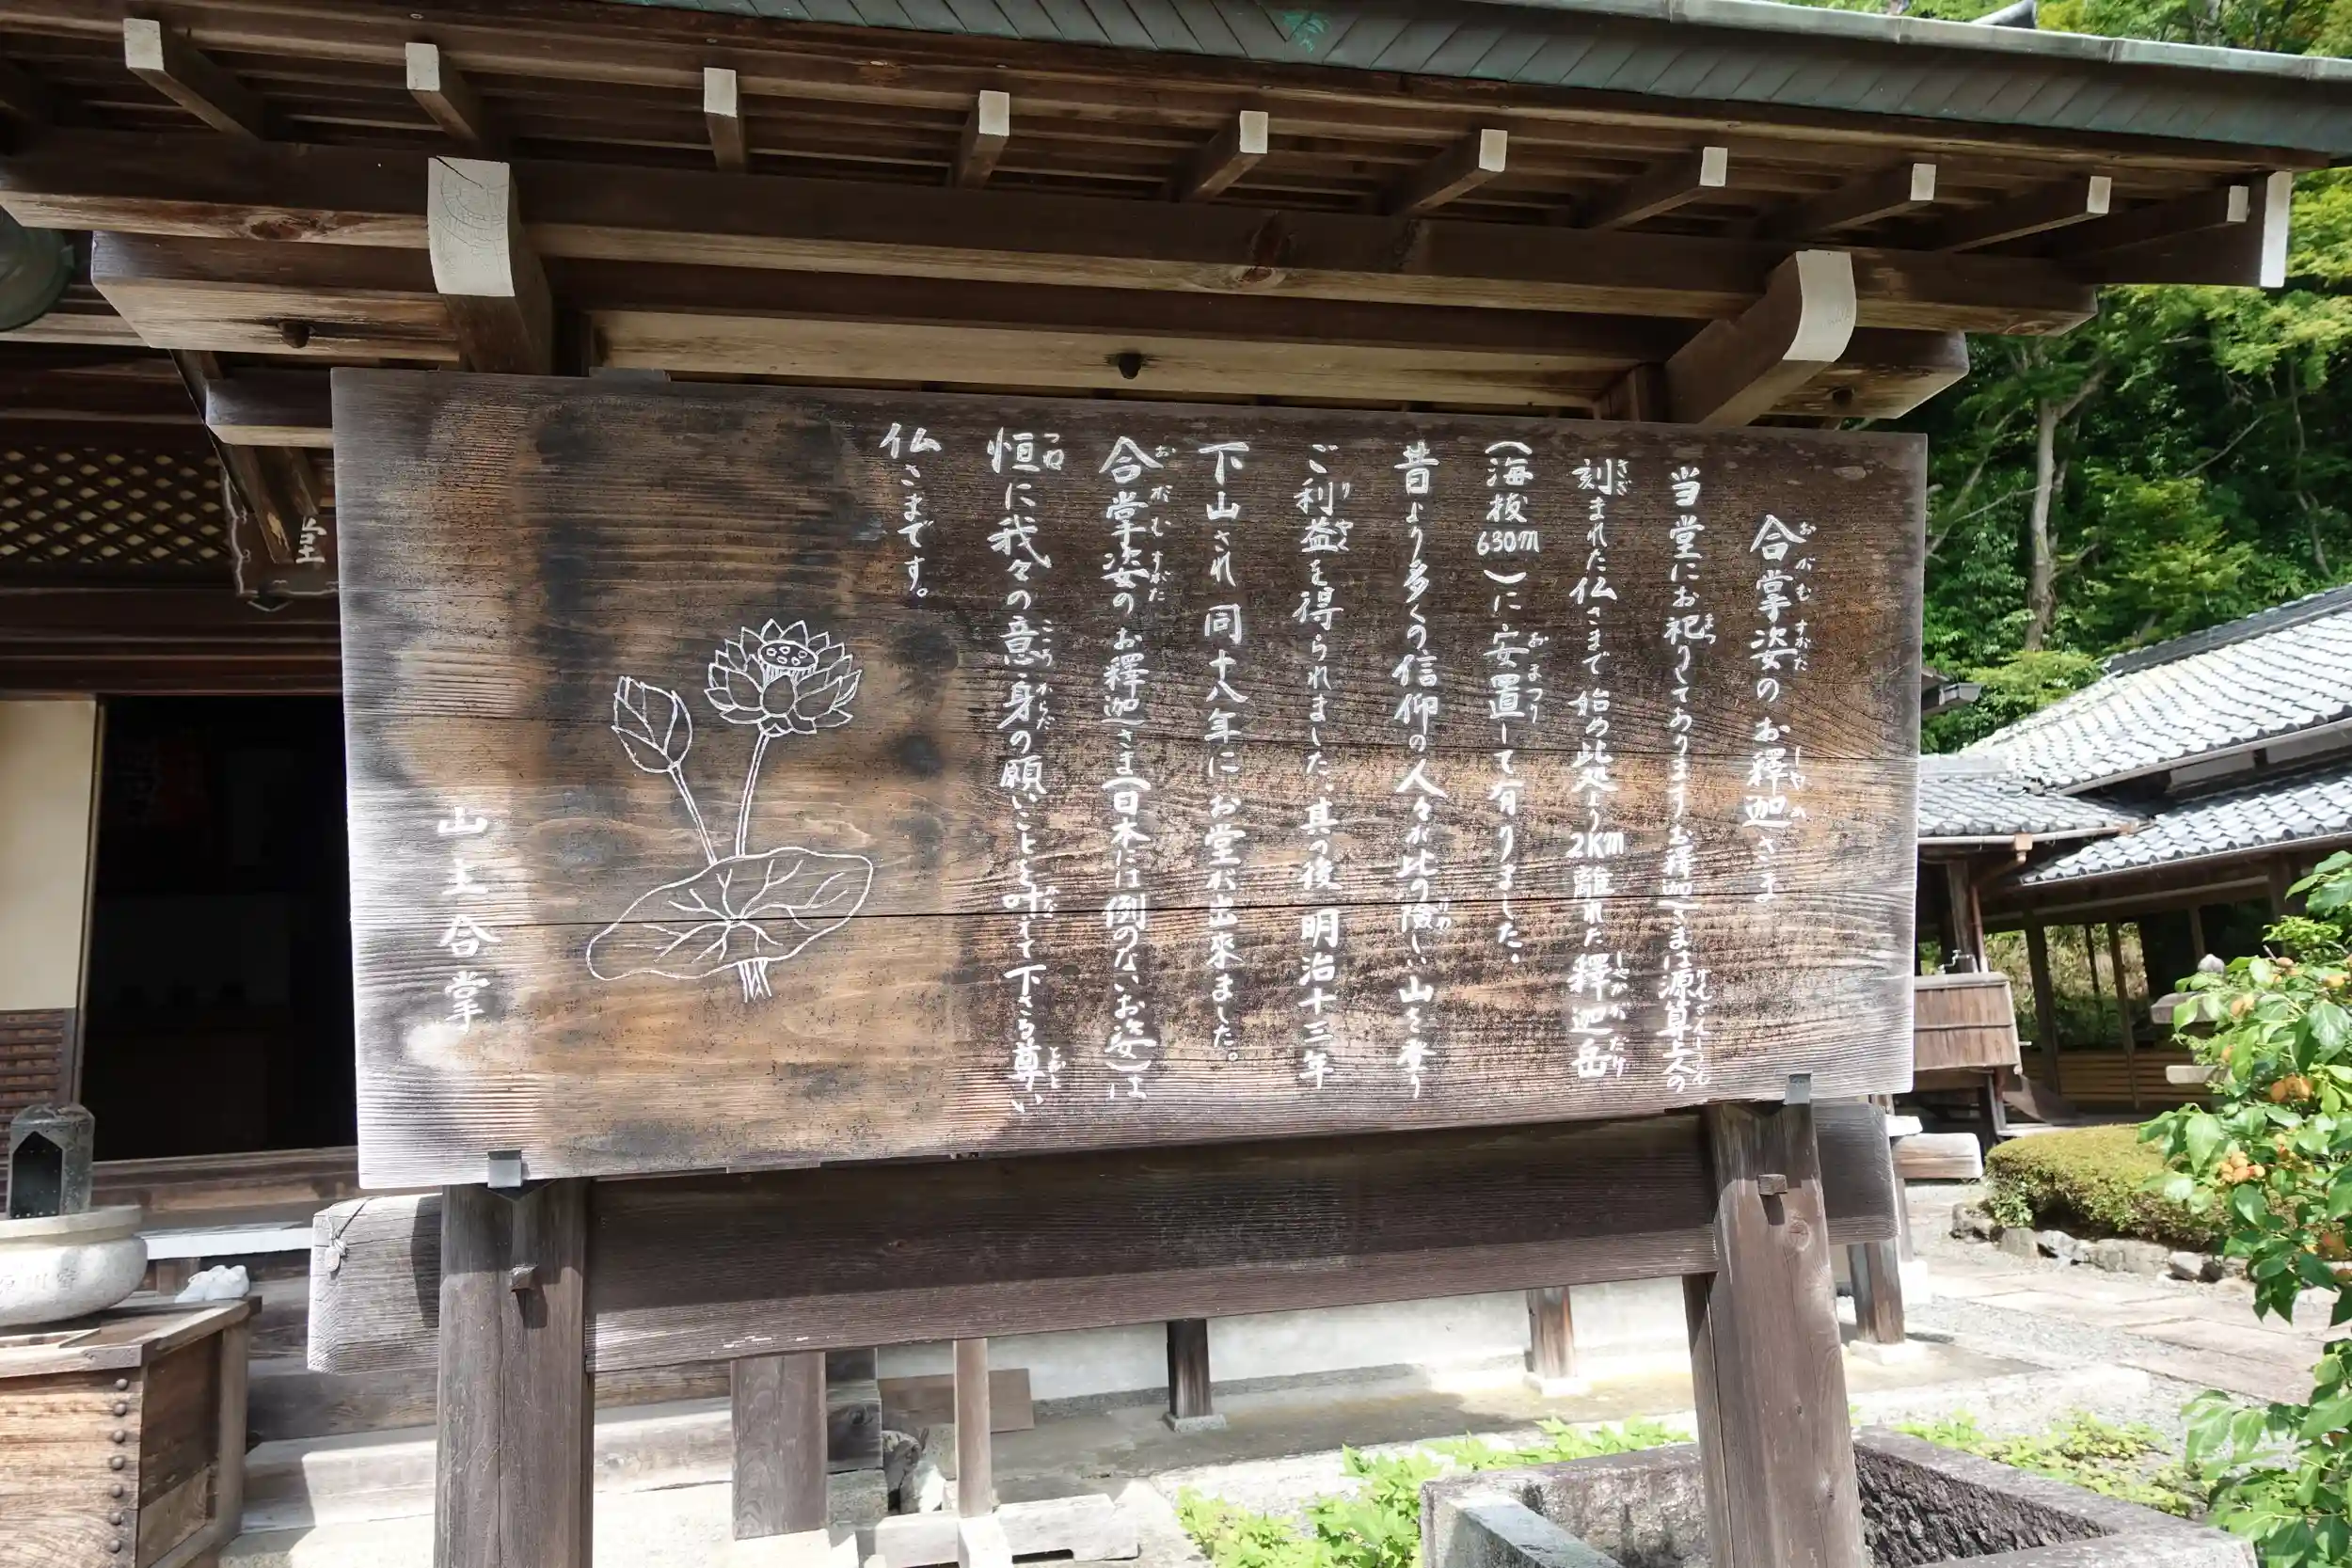 合掌姿のお釋迦さま
当堂にお祀りしてありますお釋迦さまは源算上人の
刻まれた仏さまで始め此処より2Km離れた釋迦岳
(海抜630m)に安置して有りました。
昔より多くの信仰の人々が此の険しい山を登り
ご利益を得られました。其の後明治十三年
下山され同十八年にお堂が出來ました。
合掌姿のお釋迦さま(日本には例のないお姿)は
恒に我々の意・身の願いごとを叶えて下さる尊い
仏さまです。
山主合掌
堂